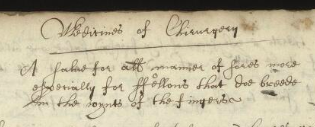 Medicines of Chirurgery
A salve for all manner of sores more
especially for ffellons that doe breede
in the ioynts of the fingers